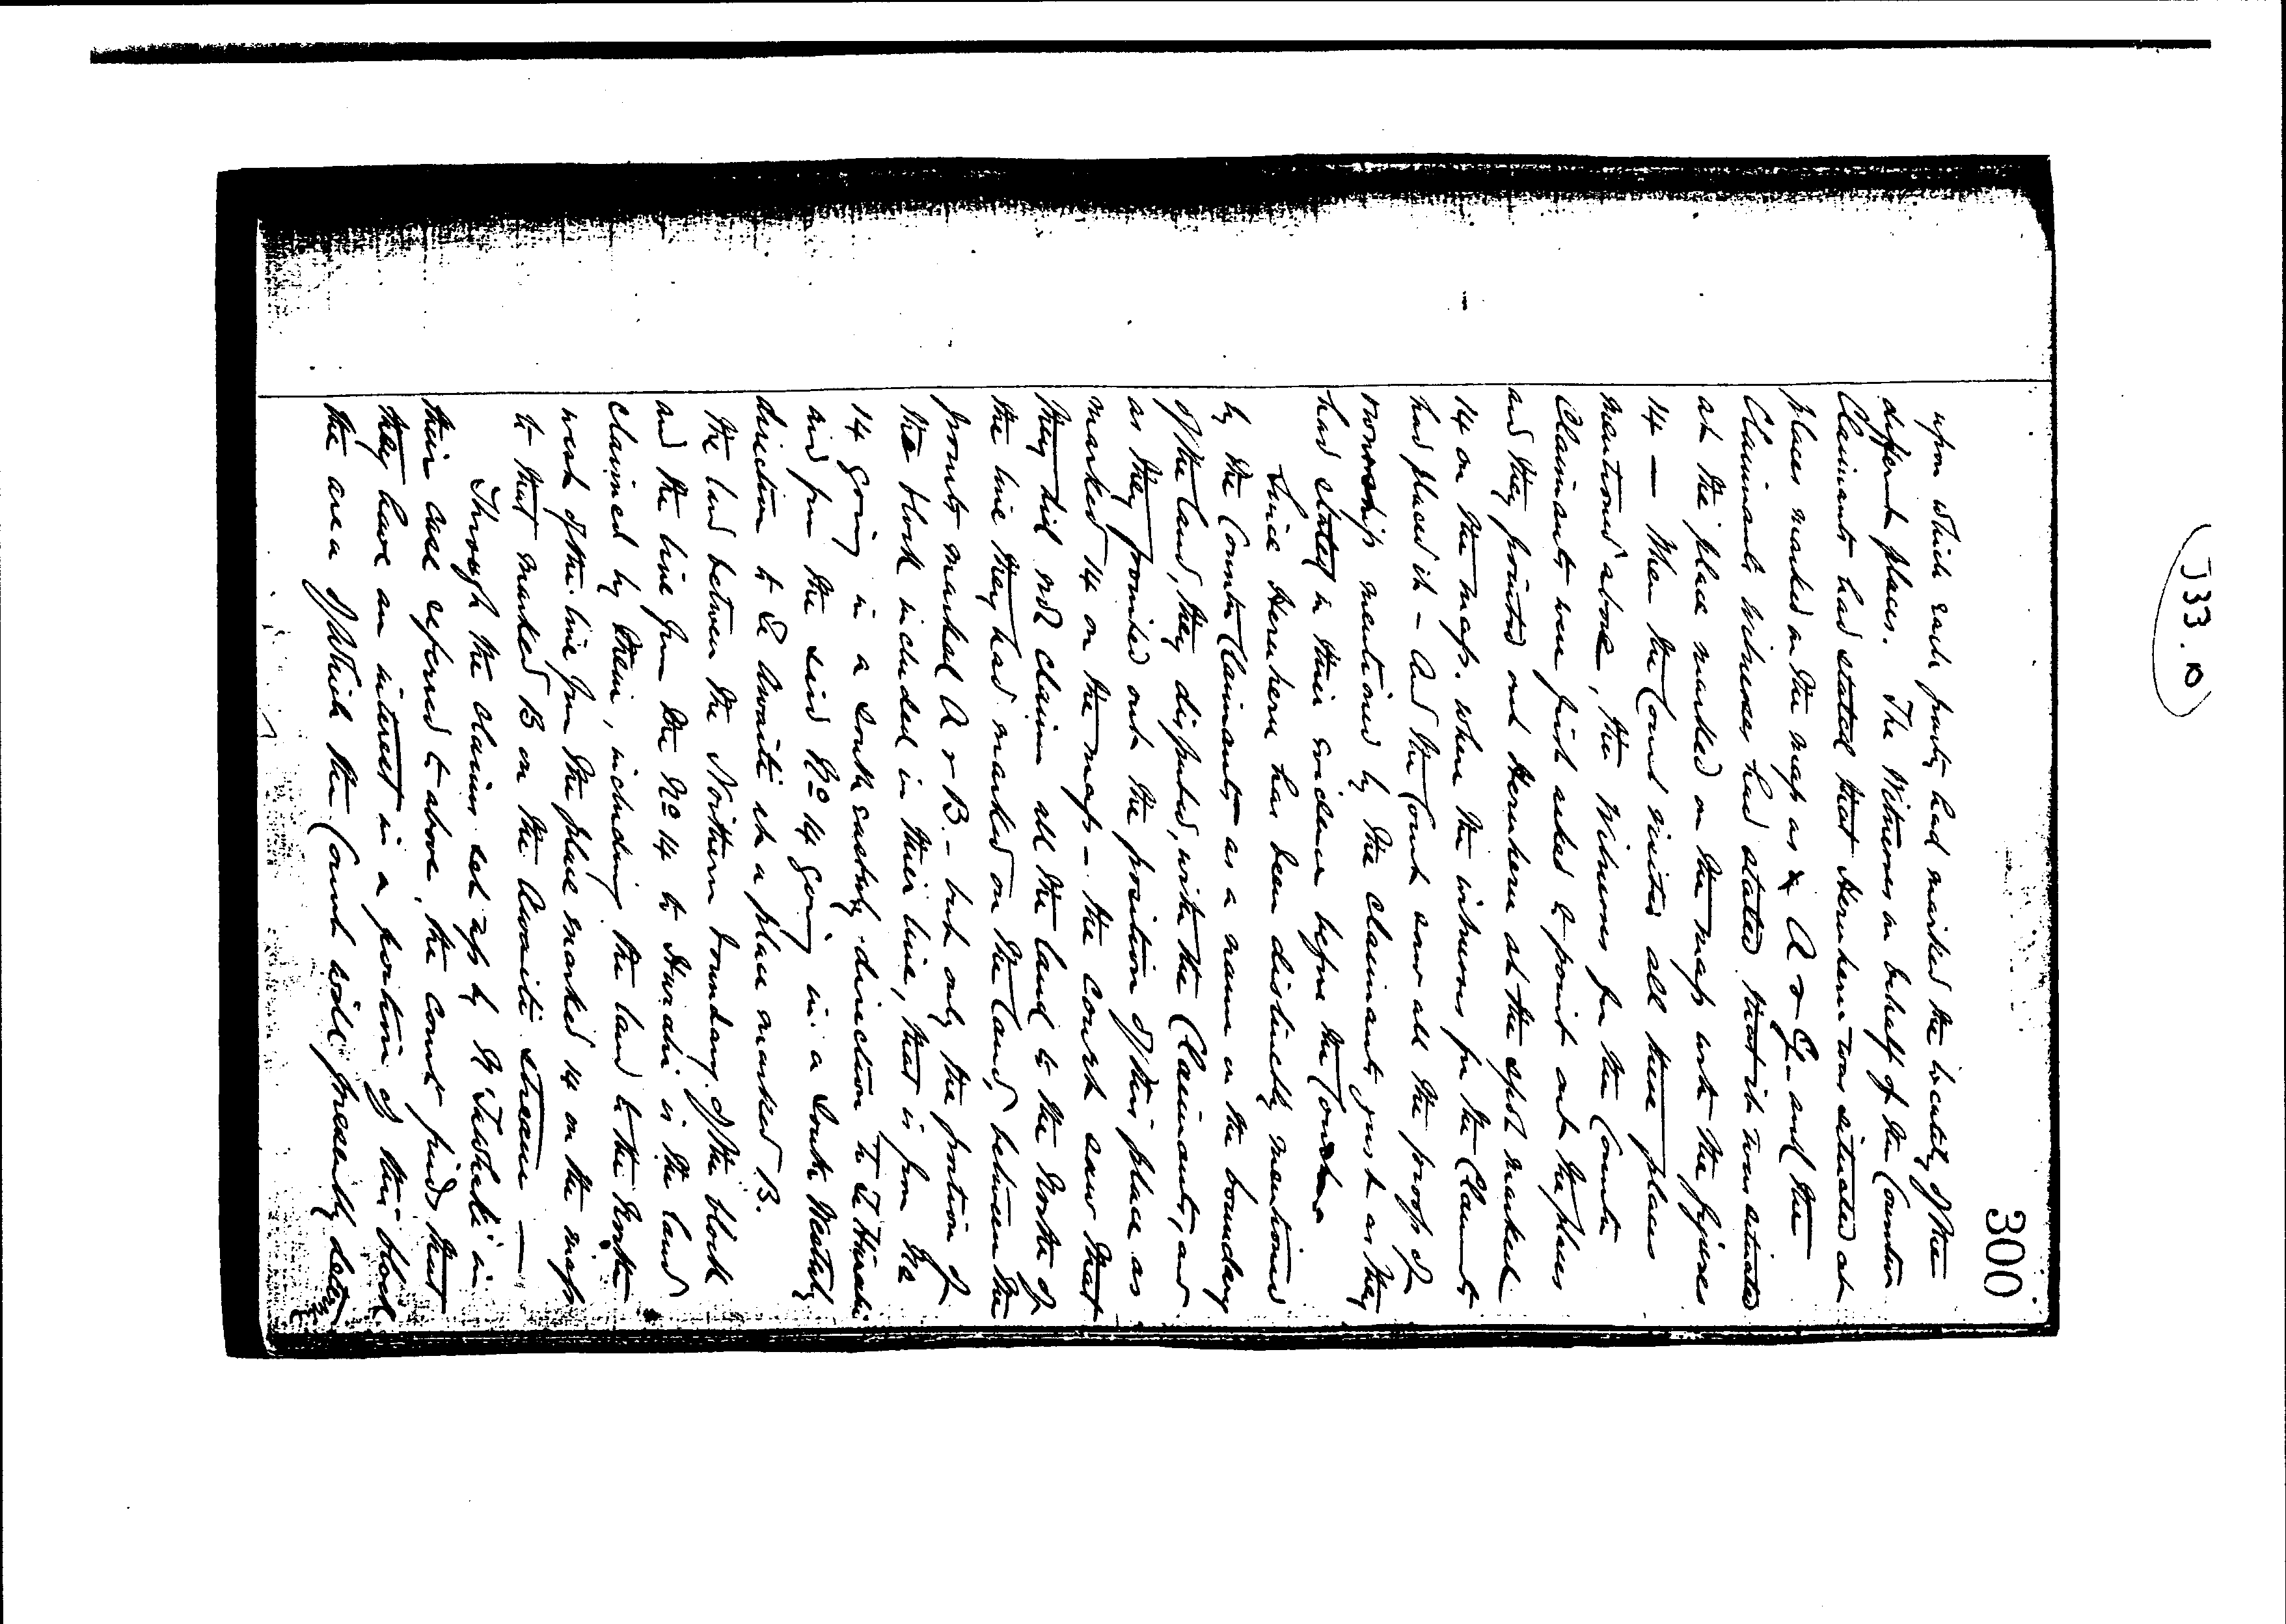 J33.10
300
upon which each party had marked the locality of the
different places. The Witnesses on behalf of the Counter
Claimants had stated that Heruheru was situated at
places marked on the map as A & C, and the
Claimants witnesses had stated that it was situated
at the place marked on the map with the figures
14 — When the Court visited all these places
mentioned above, the Witnesses for the Counter
Claimants were first asked to point out the places
and they pointed out Heruheru at the spot marked
14 on the map. where the witnesses for the Claimants
had placed it - And the Court saw all the proofs of
ownership mentioned by the Claimants just as they
had stated in their evidence before the Court
Since Heruheru has been distinctly mentioned
by the Counter Claimants as a name on the boundary
of the land, they disputed, with the Claimants, and
as they pointed out the position of this place as
marked 14 on the map - the Court saw that
they did not claim all the land to the North of
the line they had marked on the land, between the
points marked A & B - but only the portion of
the block included in their line, that is from No
14 going in a South easterly direction to Te Huruhi
and from the said No 14 going in a South Westerly
direction to Te Awaiti at a place marked B.
The land between the Northern boundary of the block
and the line from the No 14 to Huruhi is the land
claimed by them, including the land to the North
west of the line from the place marked 14 on the map
to that marked B on the Awaiti stream —
Through the claims set up by N Tawhaki in
their case referred to above, the Court finds that
they have an interest in a portion of this block
the area of which the Court will presently